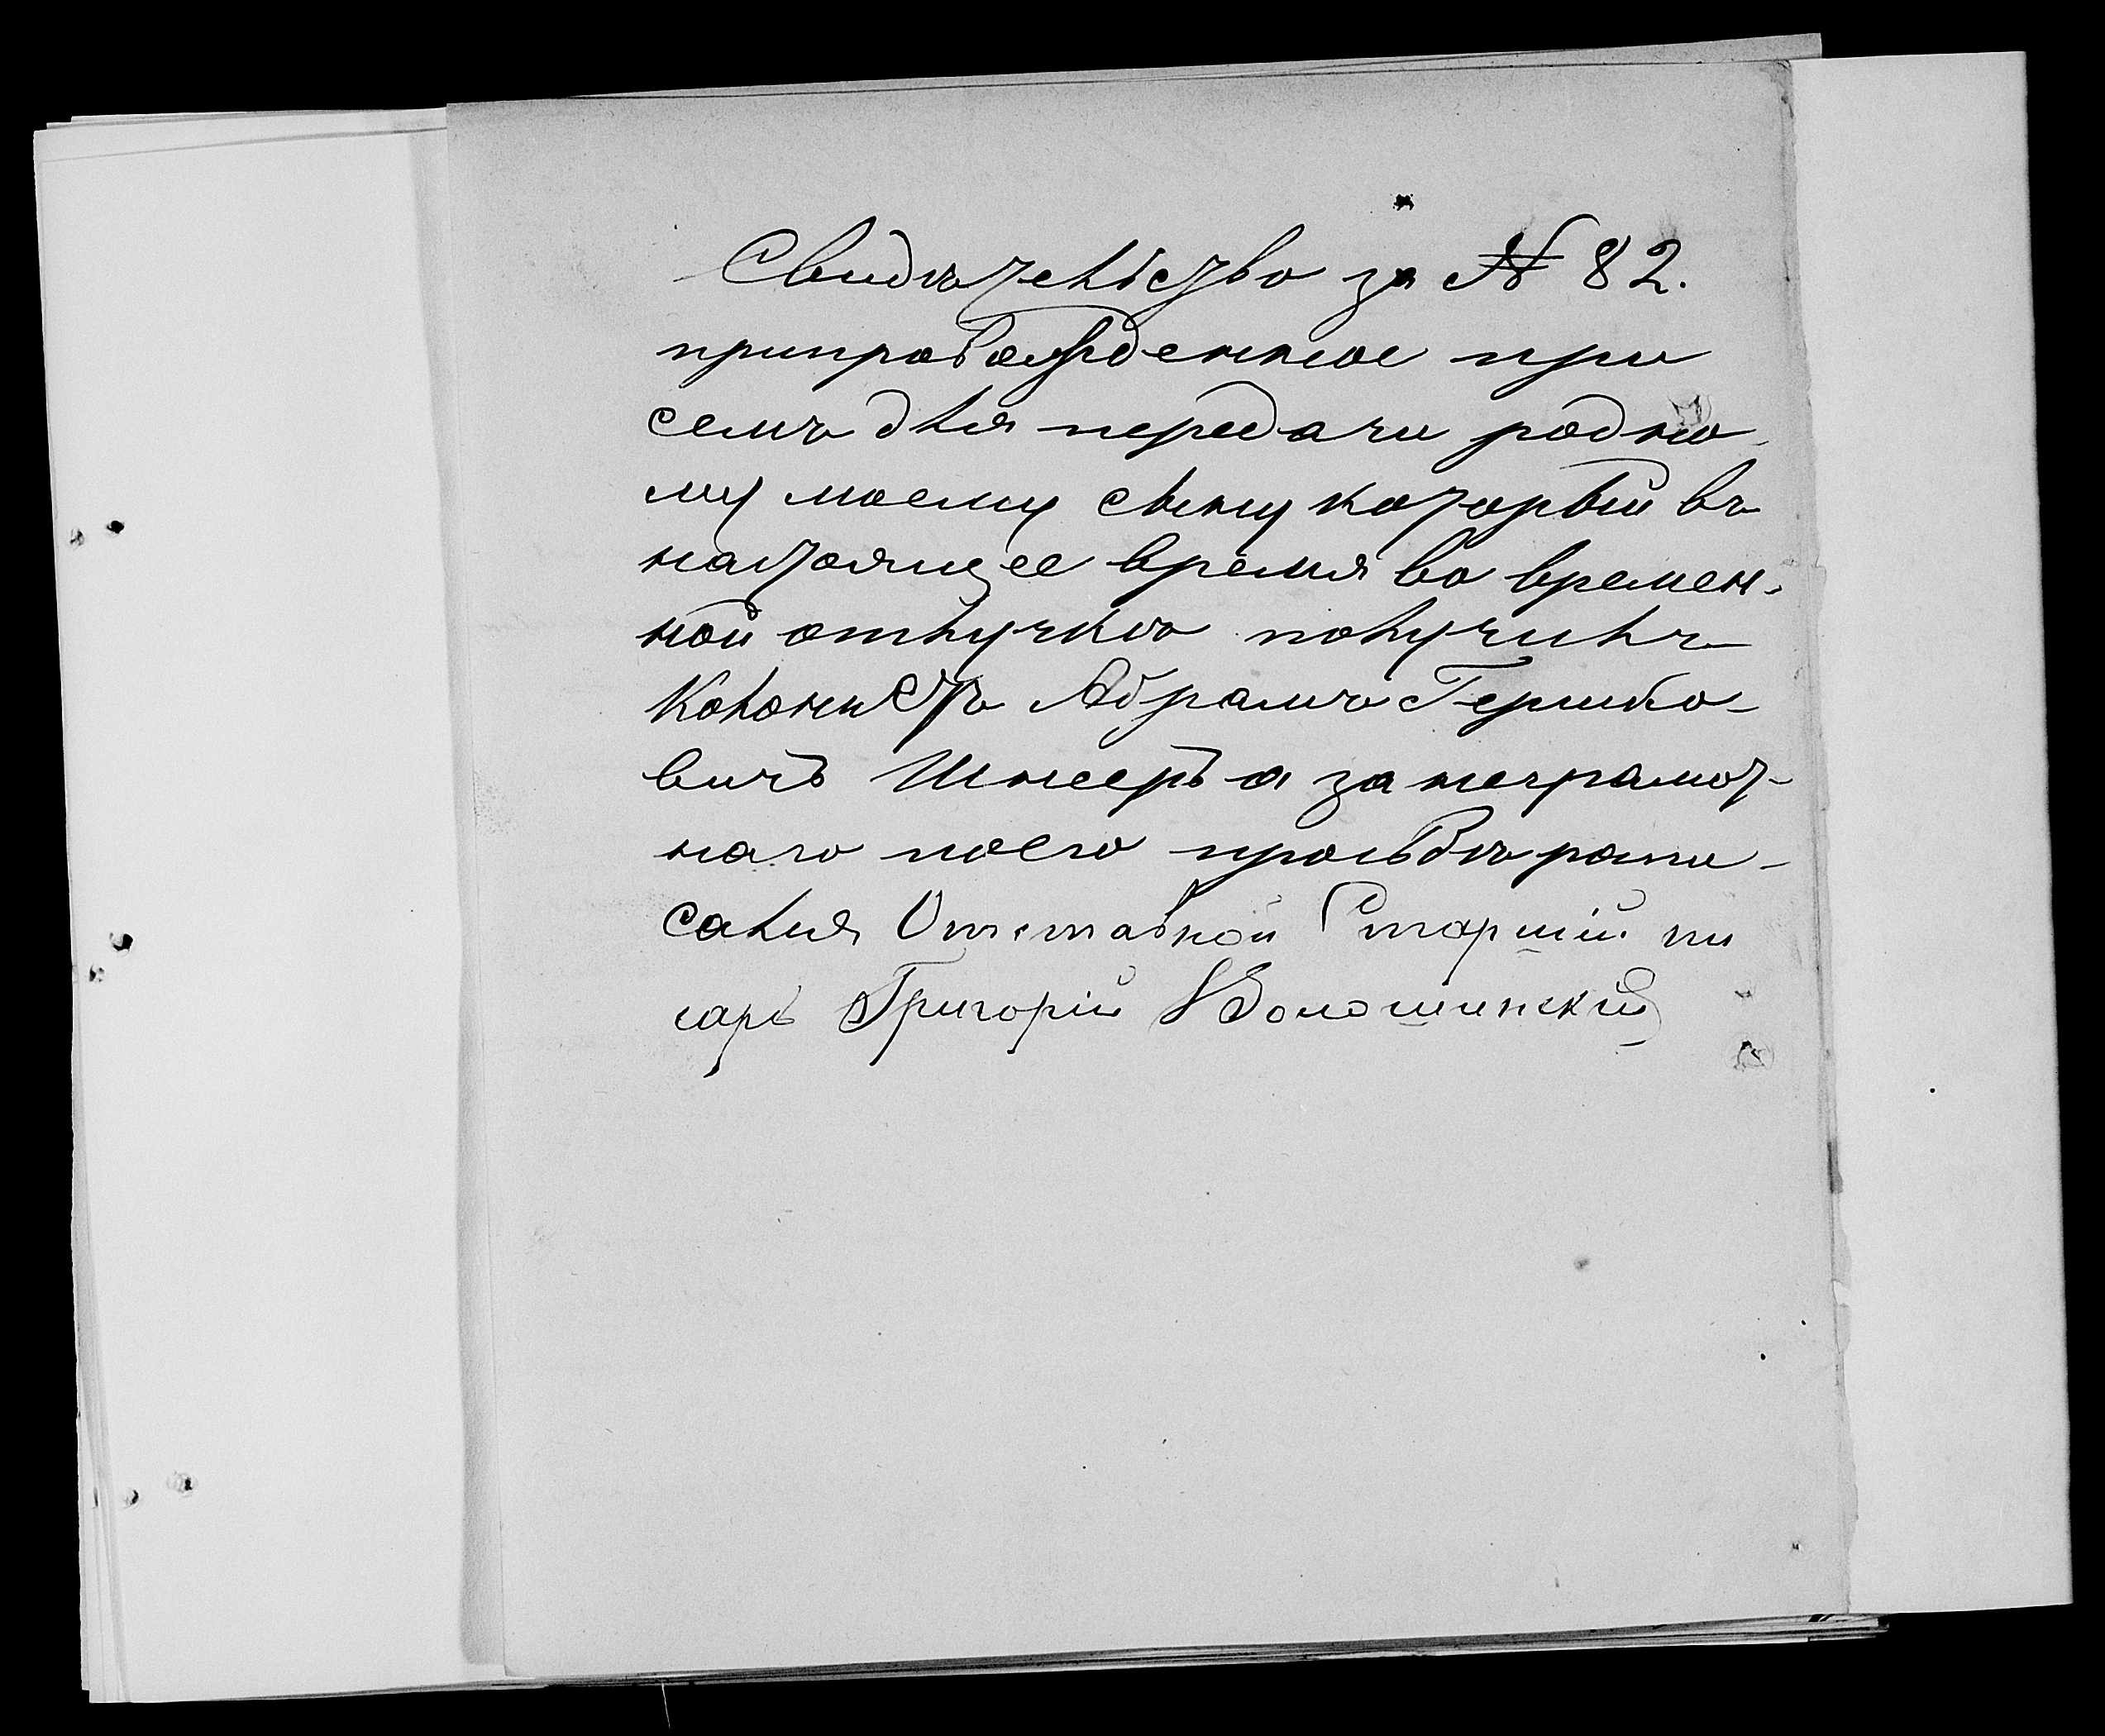 Свидѣтельство за № 82.
припровожденное при
семъ для передачи родно-
му моему сыну который въ
настоящее время во времен-
ной отлучкѣ получилъ
Колонистъ Абрамъ Гершко-
вичъ Шнееръ а за неграмот-
наго поего прозьбѣ роспи-
сался Отставной Старшій пи
сарь Григорій Волошинскій